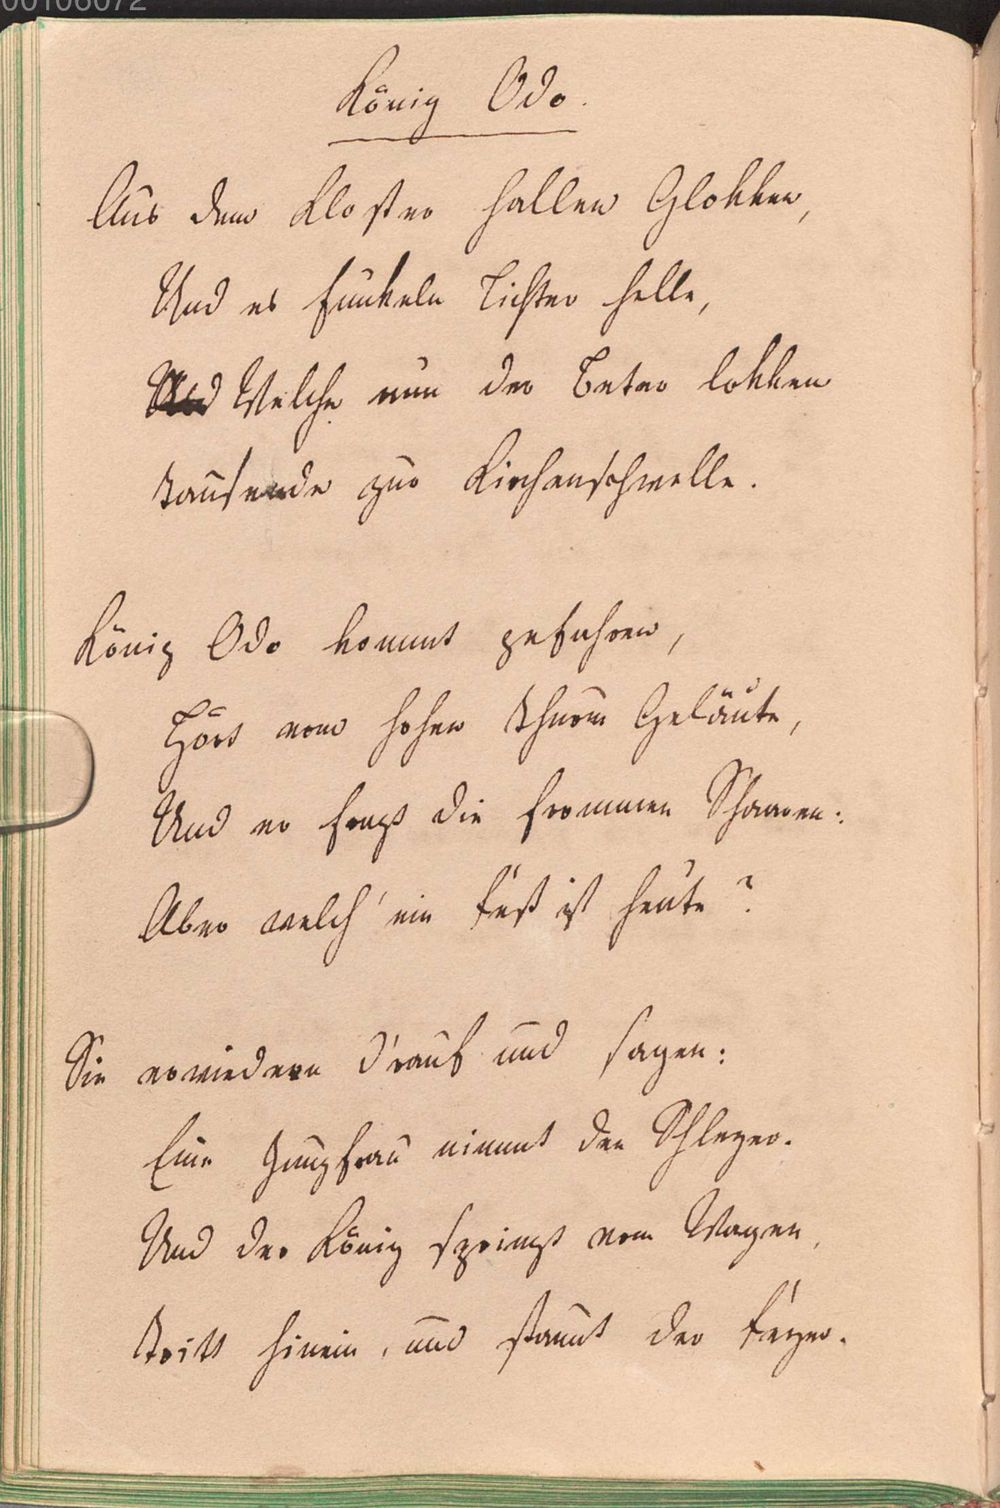 00106072
König Odo.
Aus dem Kloster hallen Glokken,
Und es funkeln Lichter helle,
Welche nun der Beter lokken
Tausende zur Kirchenschwelle.
König Odo kommt gefahren,
Hört vom hohen Thurm Geläute,
Und er fragt die frommen Schaaren:
Aber welch' ein Fest ist heute?
Sie erwiedern d'rauf und sagen:
Eine Jungfrau nimmt den Schleyer.
Und der König springt vom Wagen,
Tritt hinein, und staunt der Feyer.